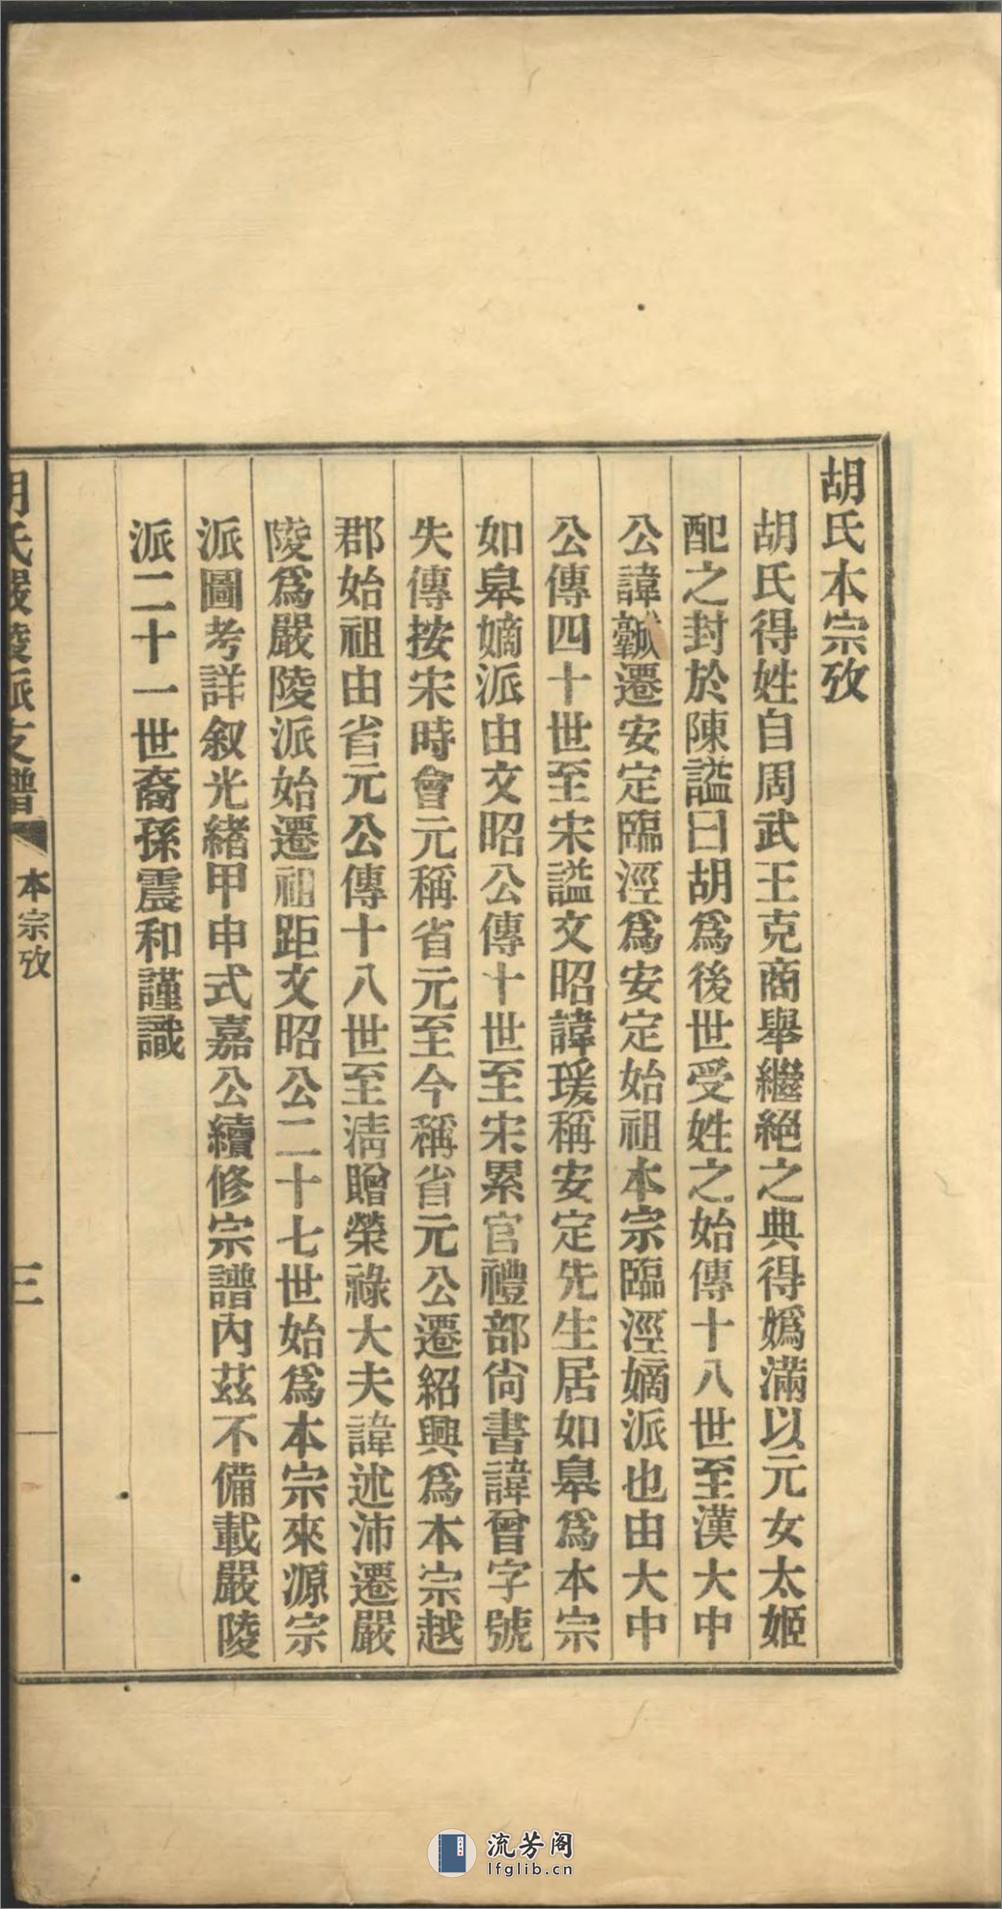 胡氏本宗攷
胡氏得姓自周武王克商舉繼絕之典得媯滿以元女太姬
配之封於陳諡曰胡爲後世受姓之始傳十八世至漢大中
公諱遷安定臨涇爲安定始祖本宗臨涇嫡派也由大中
公傳四十世至宋諡文昭諱瑗稱安定先生居如皋爲本宗
如皋嫡派由文昭公傳十世至宋累官禮部尙書諱曾字號
失傳按宋時會元稱省元至今稱省元公遷紹興爲本宗越
郡始祖由省元公傳十八世至淸贈榮祿大夫諱述沛遷嚴
陵爲嚴陵派始遷祖距文昭公二十七世始爲本宗來源宗
派圖考詳叙光緒甲申式嘉公續修宗譜內茲不備載嚴陵
派二十一世裔孫震和謹識
胡氏嚴陵派支譜
本宗攷
三
流芳阁
lfglib.cn